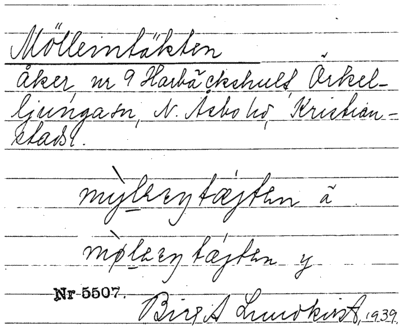 Mölleintäkten
Åker, nr 9 Harbäckshult, Örkel-
ljungasn, N. Åsbo hd, Kristian-
stads l.
mỳlęeŋtæjten ä
mø̀lęeŋtájten y
Nr 5507.
Birgit Lundkvist, 1939.